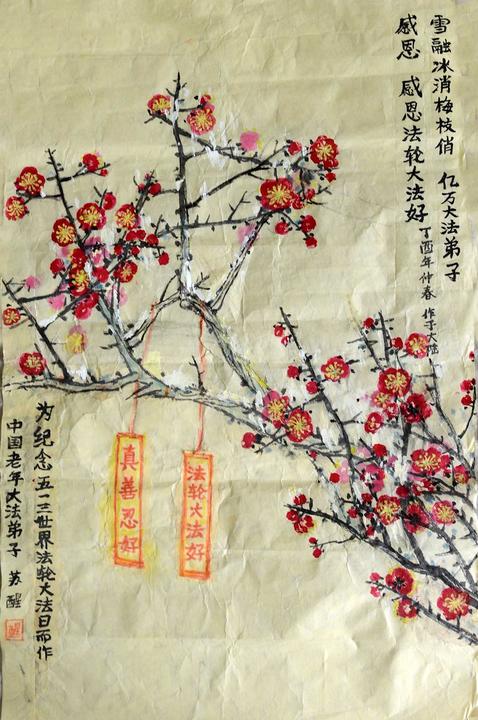 雪融冰消梅枝俏 亿万大法弟子
感恩 感恩法轮大法好
丁酉年仲春 作于大陸
法轮大法好
真善忍好
为纪念五一三世界法轮大法日而作
中国老年大法弟子 苏醒
醒